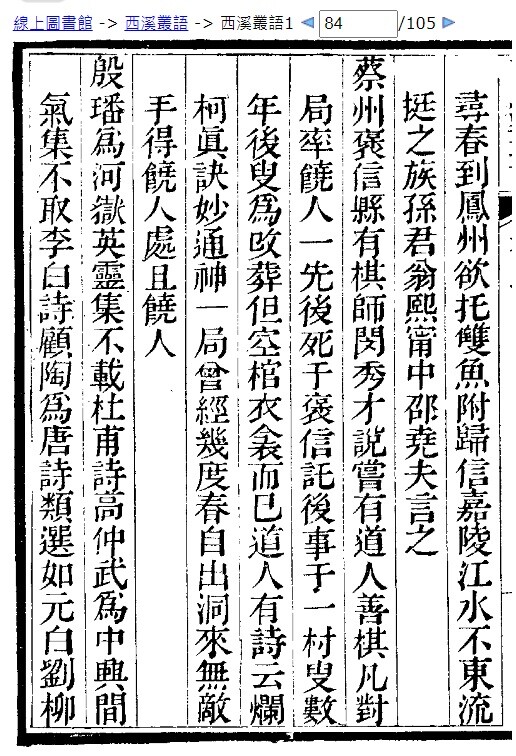 線上圖書館 -> 西溪叢語 -> 西溪叢語1 84 /105
尋春到鳳州欲托雙魚附歸信嘉陵江水不東流
挺之族孫君翁熙甯中邵堯夫言之
蔡州襃信縣有棋師閔秀才說嘗有道人善棋凡對
局率饒人一先後死于襃信託後事于一村叟數
年後叟爲改葬但空棺衣衾而已道人有詩云爛
柯眞訣妙通神一局曾經幾度春自出洞來無敵
手得饒人處且饒人
殷璠爲河嶽英靈集不載杜甫詩高仲武爲中興間
氣集不取李白詩顧陶爲唐詩類選如元白劉柳